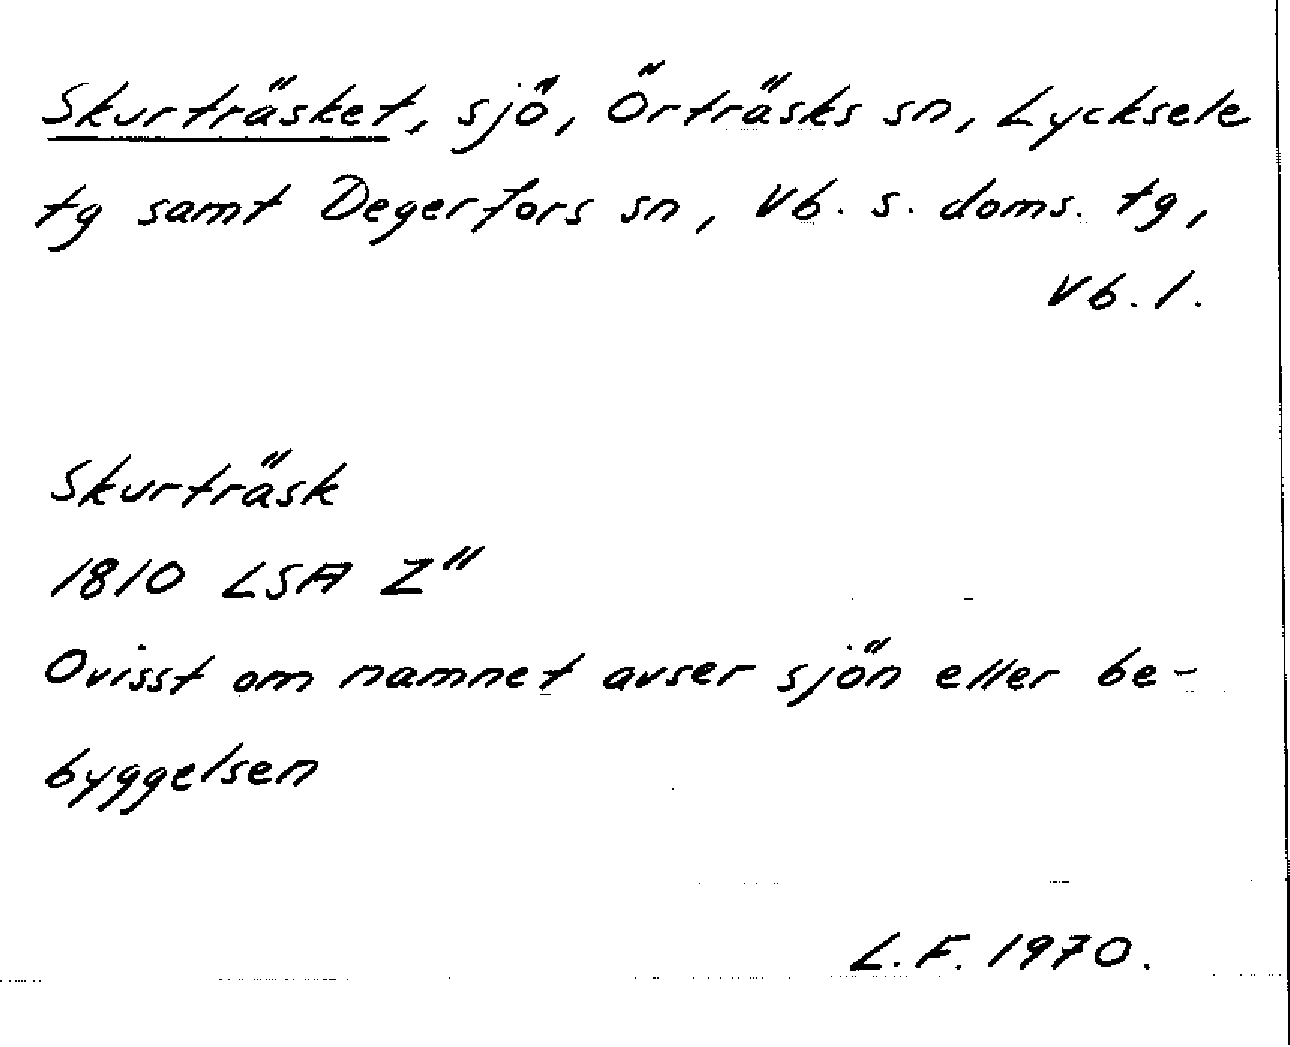 Skurträsket, sjö, Örträsks sn, Lycksele
tg samt Degerfors sn, Vb. s. doms. tg,
Vb. l.
Skurträsk
1810 LSA Z"
Ovisst om namnet avser sjön eller be-
byggelsen
L.F. 1970.